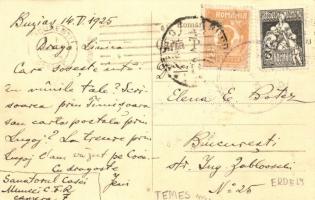 Buziaș 14.V.1925
Dragă Lenica
Care sosește întâi
în mâinile tale? Scri-
soarea prin Timișoara
sau cartea postală prin
Lugoj? La trecere prin
Lugoj l'am văzut pe Coca.
Cu dragoste
Jeni
Sanatoriul Casei
Muncei C.F.R.
camera 7
ROMANIA
Elena E. Botez
București
str. Ing. Zablovschi
No 25
TEMES
ERDELY